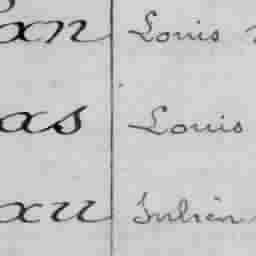 an Louis
as Louis
au Julien